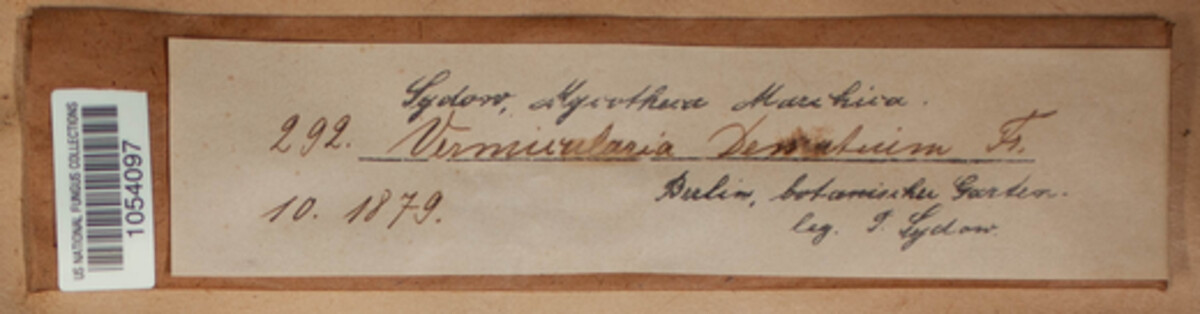 US NATIONAL FUNGUS COLLECTIONS
1054097
Sydow, Mycotheca Marchica.
292. Vermicularia Dematium Fr.
10. 1879.
Berlin, botanischer Garten.
leg. P. Sydow.